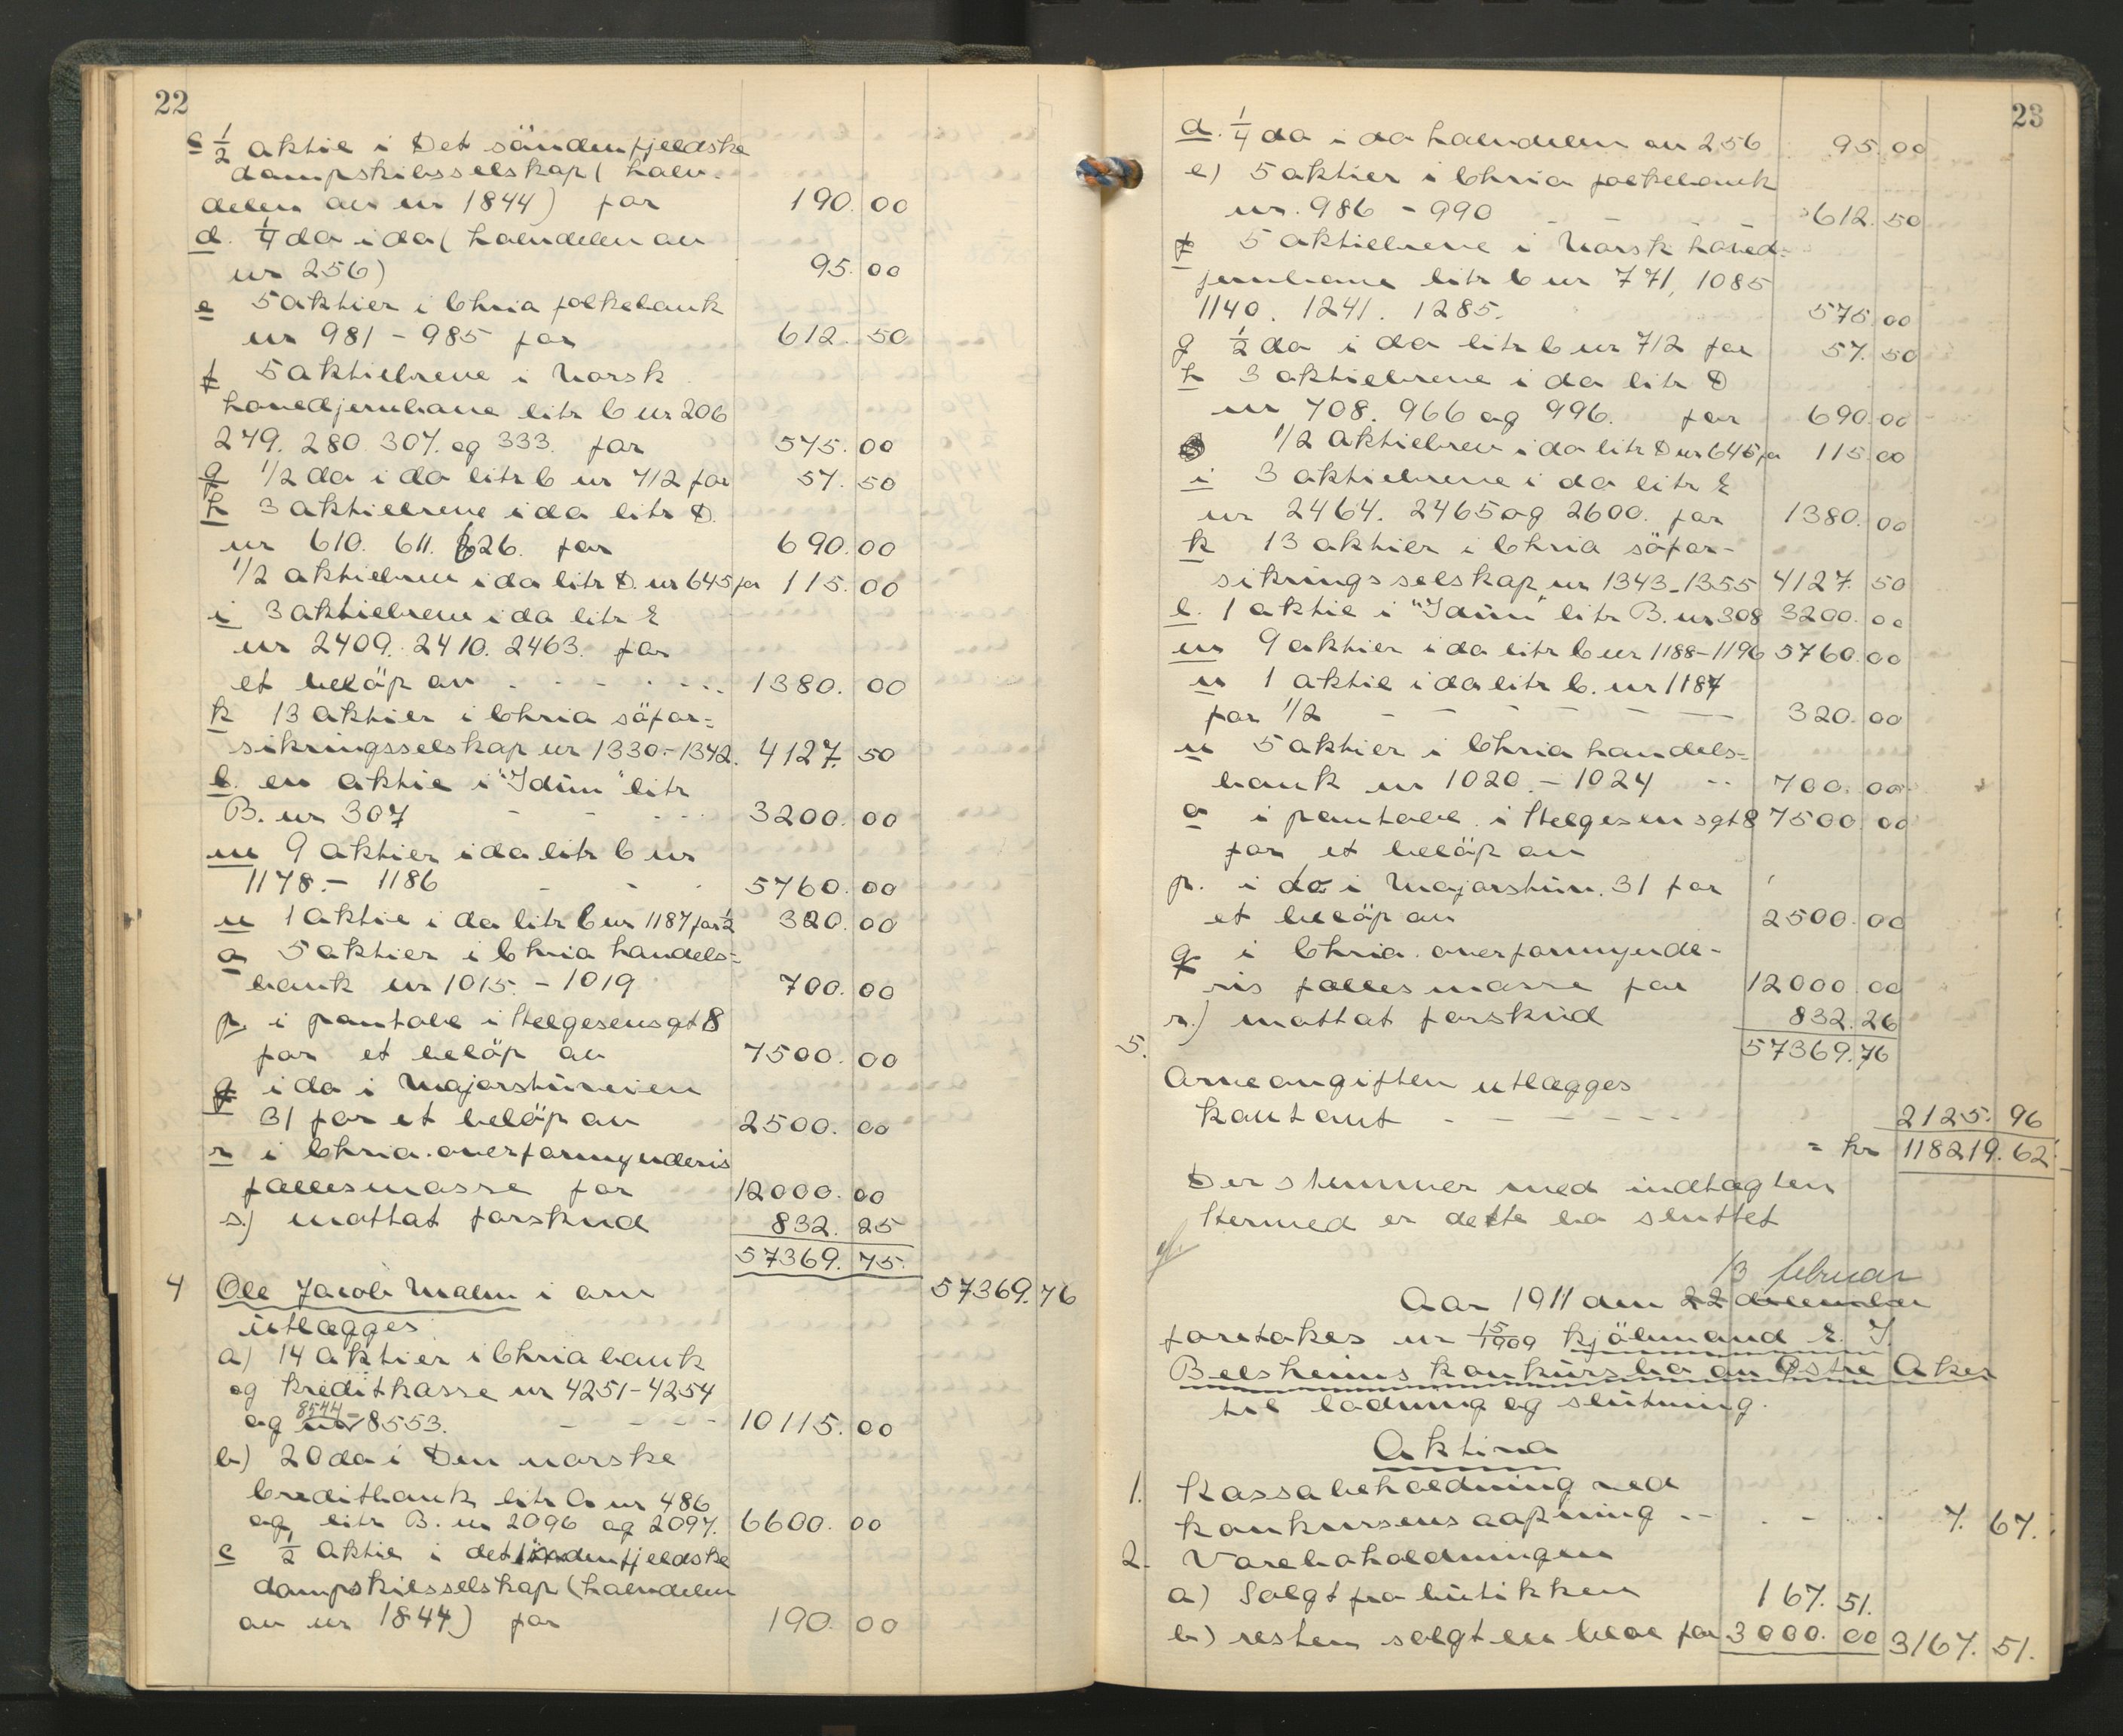 22
c 1/2 aktie i Det søndenfjeldske
dampskibsselskap (halv-
delen av nr 1844) for 190.00
d. 1/4 do i do (halvdelen av
nr 256) 95.00
e 5 aktier i Chria folkebank
nr 981 - 985 for 612.50
f 5 aktiebreve i Norsk
hovedjernbane litr C nr 206
279. 280. 307. og 333. for 575.00
g 1/2 do i do litr C nr 712 for 57.50
h 3 aktiebreve i do litr D.
nr 610. 611. 626. for 690.00
1/2 aktiebrev i do litr D. nr 645 for 115.00
i 3 aktiebreve i do litr E
nr 2409. 2410. 2463. for
et beløp av - - - - 1380.00
k 13 aktier i Chria søfor=
sikringsselskap nr 1330.-1342. 4127.50
l. en aktie i "Idun" litr
B. nr 307 - - - 3200.00
m 9 aktier i do litr C nr
1178.- 1186 - - 5760.00
n 1 aktie i do litr C nr 1187 for 1/2 320.00
o 5 aktier i Chria handels=
bank nr 1015. - 1019 700.00
p. i pantobl i Helgesensgt 8
for et beløp av 7500.00
q i do i Majorstuveien
31 for et beløp av 2500.00
r i Chria. overformynderis
fællesmasse for 12000.00
s.) mottat forskud 832.25
57369.75.
4 Ole Jacob Malm i arv 57369.76
utlægges
a) 14 aktier i Chria bank
og kreditkasse nr 4251-4254
og 8544-8553. - - - - 10115.00
b) 20 do i Den norske
Creditbank litr A nr 486
og litr B. nr 2096 og 2097. 6600.00
c 1/2 aktie i det søndenfjeldske
dampskibsselskap (halvdelen
av nr 1844) for 190.00
23
d. 1/4 do i do halvdelen av 256 95.00
e) 5 aktier i Chria folkebank
nr. 986 - 990 - - - 612.50
f 5 aktiebreve i Norsk hoved=
jernbane litr C nr 771, 1085
1140. 1241. 1285. 575.00
g 1/2 do i do litr C nr 712 for 57.50
h 3 aktiebreve i do litr D
nr 708. 966 og 996. for 690.00
1/2 aktiebrev i do litr D nr 645 for 115.00
i 3 aktiebreve i do litr E
nr 2464. 2465 og 2600. for 1380.00
k 13 aktier i Chria søfor-
sikringsselskap nr 1343-1355 4127.50
l. 1 aktie i "Idun" litr B. nr 308 3200.00
m 9 aktier i do litr C nr 1188-1196 5760.00
n 1 aktie i do litr C. nr 1187
for 1/2 - - - - - - 320.00
n 5 aktier i Chria handels=
bank nr 1020. - 1024 - - 700.00
o i pantobl. i Helgesensgt 8 7500.00
for et beløp av
p. i do i Majorstuv. 31 for
et beløp av 2500.00
q i Chria. overformynde-
ris fællesmasse for 12000.00
r.) mottat forskud 832.26
57369.76
5.
Arveavgiften utlægges
kontant - - - - - - 2125.96
= kr 118219.62
Der stemmer med indtægten
Hermed er dette bo sluttet
13 februar
Aar 1911 den 22 december
foretokes nr 15/1909 kjøbmand E. J.
Belsheims konkursbo av Østre Aker
til lodning og slutning.
Aktiva
1. Kassabeholdning ved
konkursens aapning - - - - - 7.67.
2. Varebeholdningen
a) Solgt fra butikken 167.51.
b) resten solgt en bloc for 3000.00 3167.51.